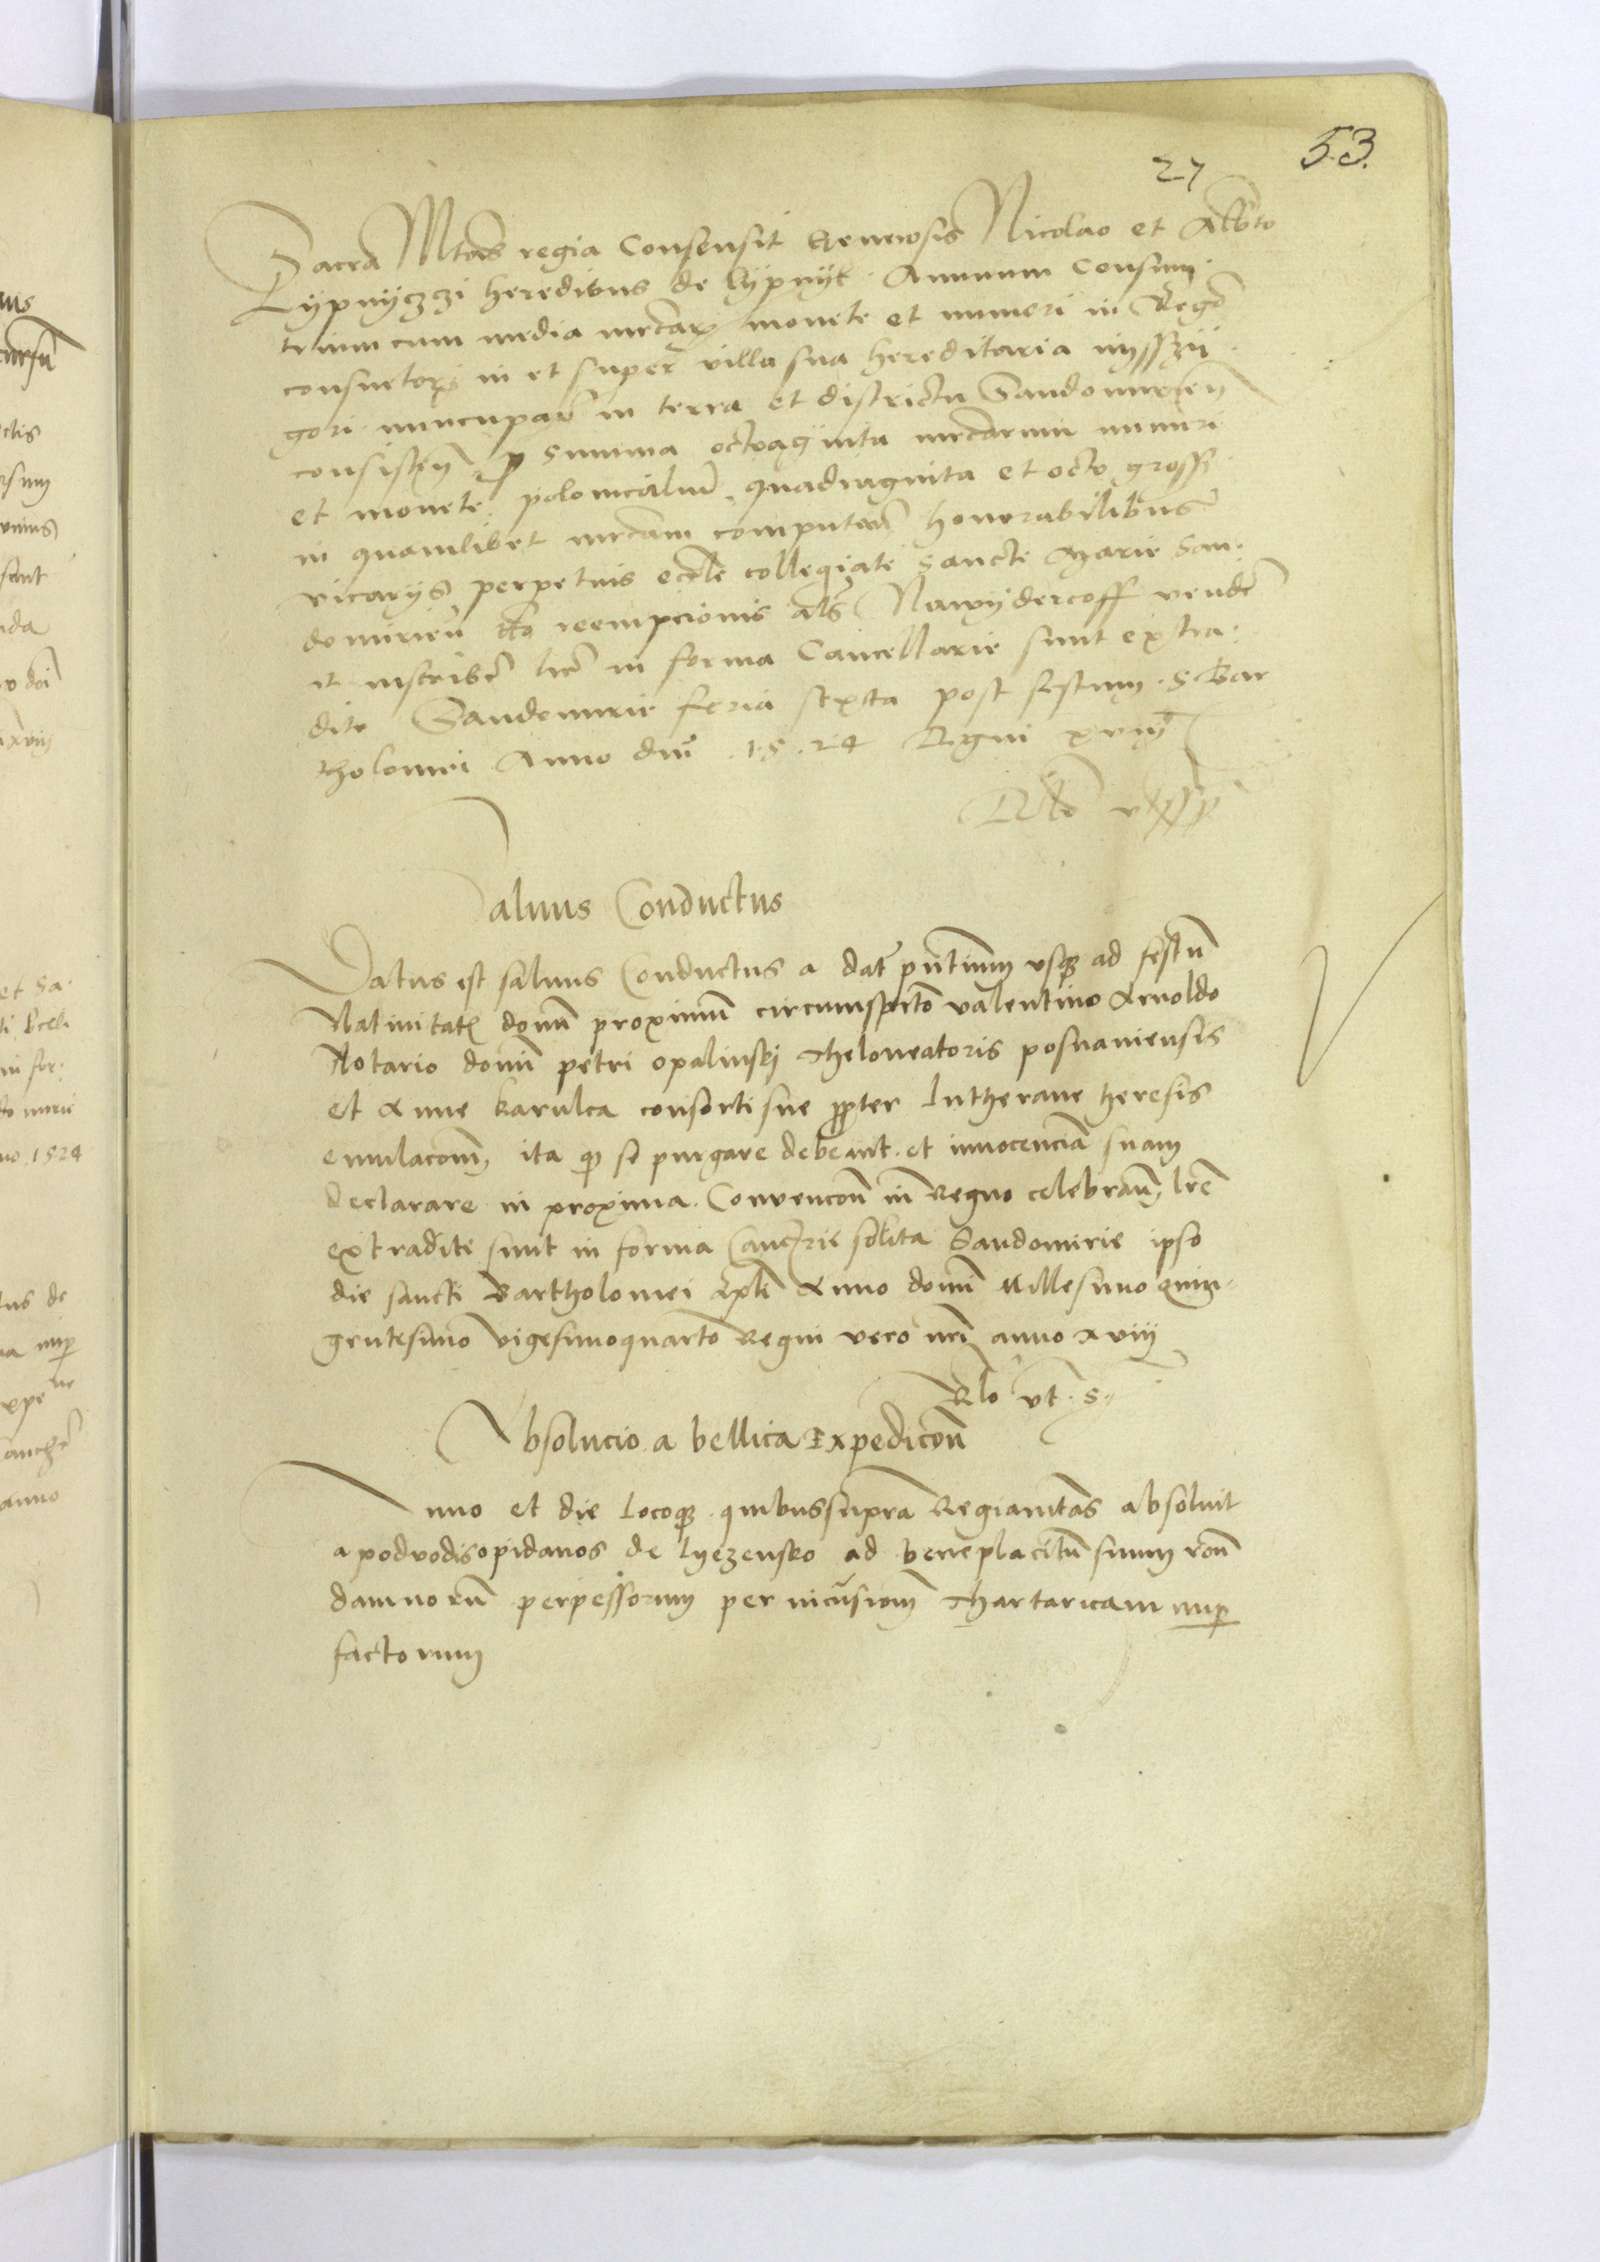 27 53.
Sacra Mtas regia Consensit Generosis Nicolao et Alberto
Lypnyczzi heredibus de Lypnyk Annuum Censum
trium cum media mrcarum monete et numeri in Regno
consuetorum in et super villa sua hereditaria
gori nuncupata in terra et districtu Sandomiriensi
consisten pro summa octoaginta mrcarum numeri
et monete polonicalium quadraginta et octo grossi
in quamlibet mrcam computan honorabilibus
vicarijs perpetuis eccle collegiate sancte Marie San
domirien tto reempcionis als Nawydercoff vendere
et inscribere lre in forma Cancellarie sunt extra
dite Sandomirie feria sexta post festum S Bar
tholomei Anno dni 1524 Regni xviij

Saluus Conductus
Datus est saluus Conductus a dat pntium vsque ad festum
Natiuitatis domini proximum circumspecto valentino Arnoldo
Notario domini petri opalinskj Theloneatoris posnaniensis
et Anne karulca consorti sue propter lutherane heresis
emulacom ita quod se purgare debeant et innocencia suam
declarare in proxima Convencon in Regno celebran lre
extradite sunt in forma Cancrie solita Sandomirie ipso
die sancti Bartholomei Apli Anno domini Millesimo quin
gentesimo vigesimoquarto Regni vero nri anno xviij
Rlo vt s
Absolucio a bellica Expedicon
Anno et die locoque quibussupra Regiamtas absoluit
a podvodis opidanos de lyezensko ad beneplacitum suum ron
damnorum perpessorum per incursionem Thartaricam nuper
factorum